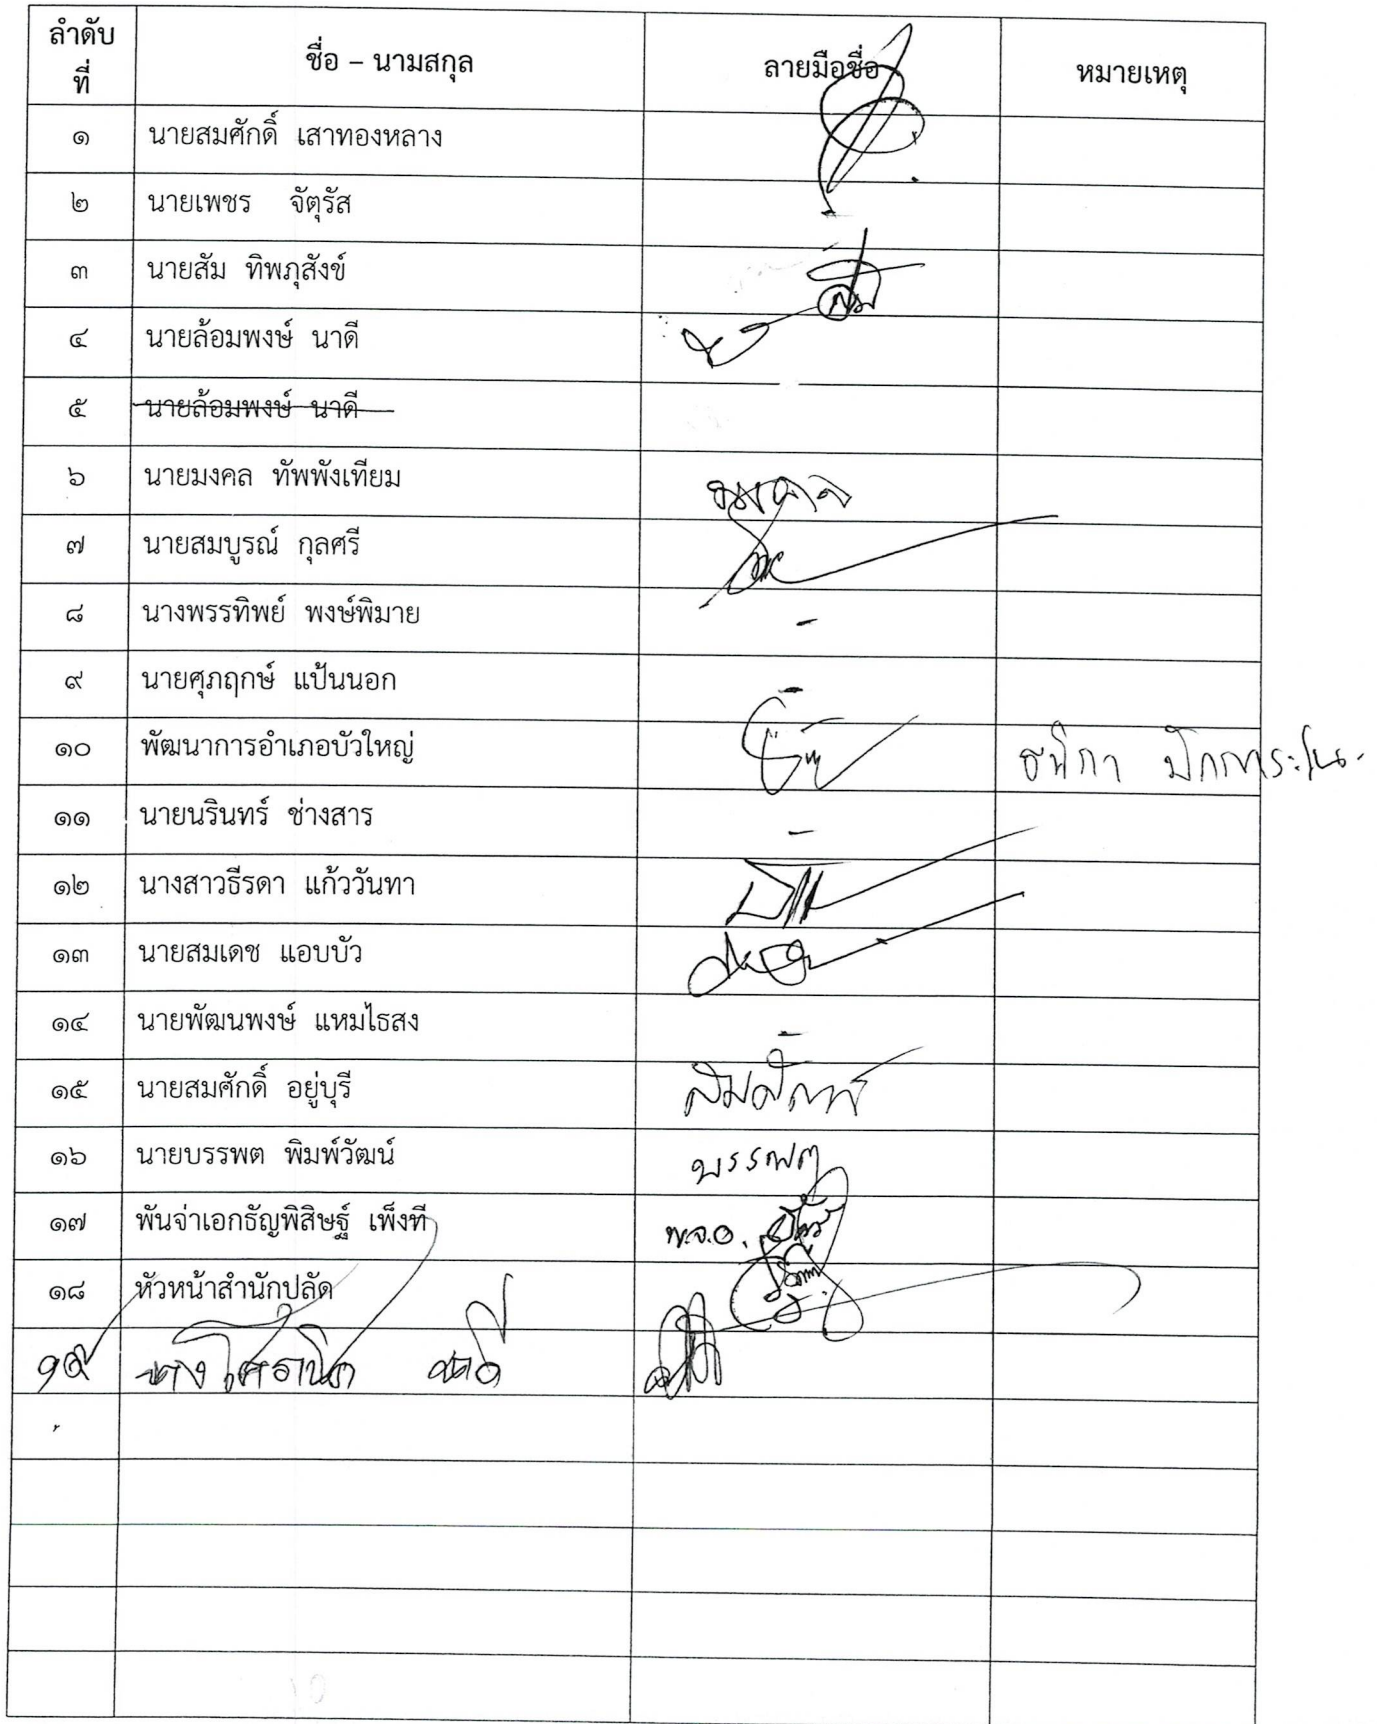 ลำดับที่ ชื่อ – นามสกุล ลายมือชื่อ หมายเหตุ
๑ นายสมศักดิ์ เสาทองหลาง
๒ นายเพชร จัตุรัส
๓ นายสัม ทิพภุสังข์
๔ นายล้อมพงษ์ นาดี
๕ นายล้อมพงษ์ นาดี
๖ นายมงคล ทัพพังเทียม มงคล
๗ นายสมบูรณ์ กุลศรี
๘ นางพรรทิพย์ พงษ์พิมาย -
๙ นายศุภฤกษ์ แป้นนอก -
๑๐ พัฒนาการอำเภอบัวใหญ่
๑๑ นายนรินทร์ ช่างสาร -
๑๒ นางสาวธีรดา แก้ววันทา
๑๓ นายสมเดช แอบบัว
๑๔ นายพัฒนพงษ์ แหมไธสง -
๑๕ นายสมศักดิ์ อยู่บุรี สมศักดิ์
๑๖ นายบรรพต พิมพ์วัฒน์ บรรพต
๑๗ พันจ่าเอกธัญพิสิษฐ์ เพ็งที พ.จ.อ.
๑๘ หัวหน้าสำนักปลัด
๑๙